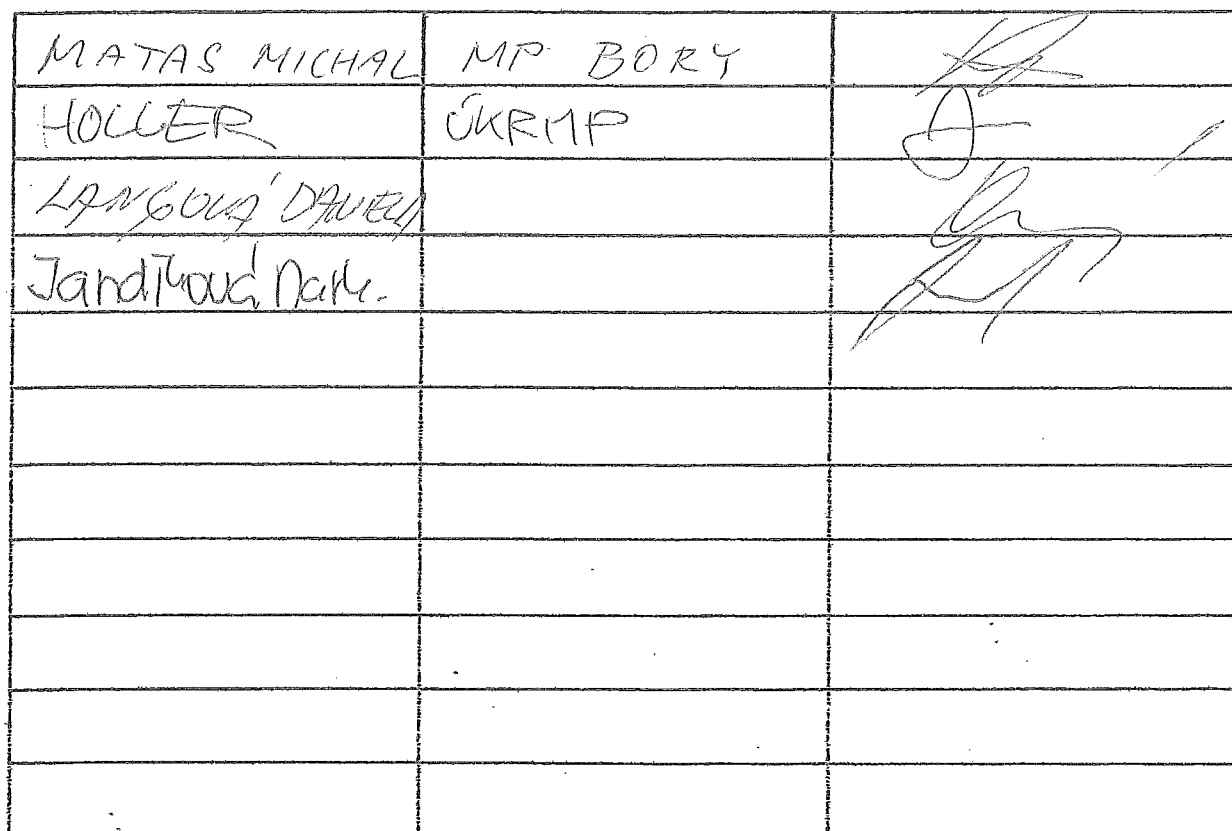 MATAS MICHAL MP BORY
HOLLER ÚKRMP
LANGOVÁ DANIELA
Jandíková